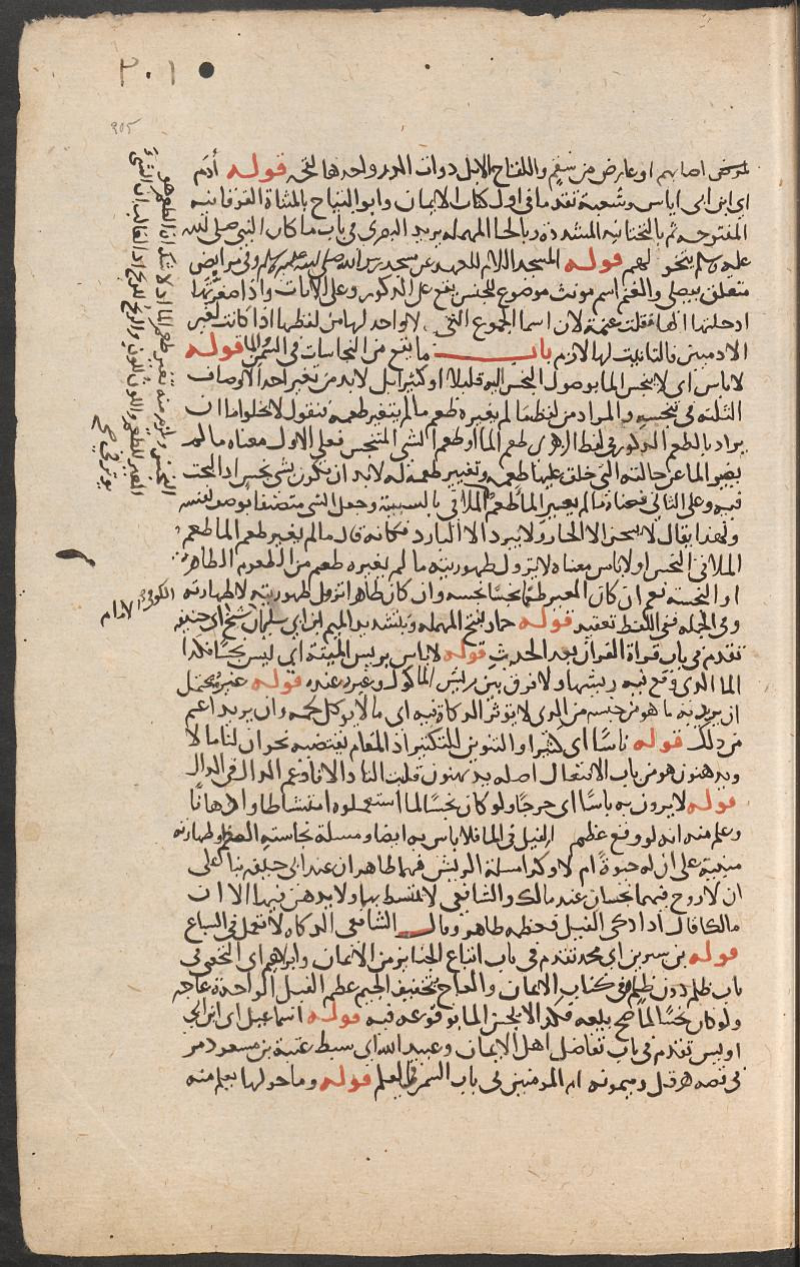 ٢٠١
٩٠٥
لمرض اصابهم او عارض من سقم واللقاح الابل ذوات الدر واحدها لقحة قوله أدم
اى ابن ابى اياس وشعبة تقدما فى اول كتاب الايمان وابو التياح بالمثناة الفوقانية
المفتوحه ثم بالتحتانيه المشدده وبالحا المهمله يزيد البصرى فى باب ما كان النبى صلى الله
عليه وسلم يتخولهم قوله المسجد اللام للعهد عن مسجد رسول الله صلى الله عليه وسلم وفى مرابض
متعلق بيصلى والغنم اسم مونث موضوع للجنس يقع على الذكور وعلى الاناث واذا صغرتها
ادخلتها الها فقلت غنيمة لان اسما الجموع التى لا واحد لها من لفظها اذا كانت لغير
الادميين فالتانيث لها لازم باب ما يقع من النجاسات فى السمن والما قوله
لا باس اى لا ينجس الما بوصول النجس اليه قليلا او كثيرا بل لابد من تغير احد الاوصاف
الثلثه فى تنجسه والمراد من لفظه ما لم يغيره طعم ما لم يتغير طعمه فنقول لا يخلو اما ان
يراد بالطعم المذكور فى لفظ الزهرى طعم الما او طعم الشى المنجس فعلى الاول معناه ما لم
يغير الما عن حالته التى خلق عليها طعمه وتغيير طعمه له لابد ان يكون بشى نجس اذ البحث
فيه وعلى الثانى فمعناه ما لم يغير الما طعم الملاقى بالسببية وجعل الشى متصفا بوصف نفسه
ولهذا يقال لا يسخن الا الحار ولا يبرد الا البارد فكانه قال ما لم يغير طعم الما طعم
الملاقى النجس او لا باس معناه لا تزول طهوريته ما لم يغيره طعم من الطعوم الطاهره
او النجسه نعم ان كان المغير طعما نجسا نجسه وان كان طاهرا تزول طهوريته لا طهارته
وفى الجمله ففى اللفظ تعقيد قوله حماد بفتح المهمله وبتشديد الميم ابن ابى سليمان شيخ ابى حنيفه
تقدم فى باب قراة القران بعد الحدث قوله لا باس بريش الميتة اى ليس نجسا فكذا
الما الذى وقع فيه ريشها ولا فرق بين ريش الماكول وغيره عنده قوله غيره يحتمل
ان يريد به ما هو من جنسه من الذى لا يوثر الذكاة فيه اى ما لا يوكل لحمه وان يريد اعم
من ذلك قوله ناسا اى كثيرا والتنوين للتكثير اذ المقام يقتضيه نحو ان لنا ما لا
ويدهنون هو من باب الافتعال اصله يدتهنون قلبت التا دالا فادغم الدال فى الدال
قوله لا يرون به باسا اى حرجا ولو كان نجسا لما استعملوه امتشاطا وادهانا
وعلم منه انه لو وقع عظم الفيل فى الما فلا باس به ايضا ومسلة نجاسته العظم وطهارته
مبنية على ان له حيوة ام لا وكذا مسلة الريش فهما طاهران عند ابى حنيفه بنا على
ان لا روح فيهما نجسان عند مالك والشافعى لا يمتشط بها ولا يدهن فيها الا ان
مالكا قال اذا ذكى الفيل فعظمه طاهر وقال الشافعى الذكاه لا تعمل فى السباع
قوله بن سيرين اى محمد تقدم فى باب اتباع الجنايز من الايمان وابراهيم اى النخعى فى
باب ظلم دون ظلم فى كتاب الايمان والعاج بتخفيف الجيم عظم الفيل الواحدة عاجه
ولو كان نجسا لما صح بيعه فكذا لا ينجس الما بوقوعه فيه قوله اسماعيل اى ابن ابى
اويس تقدم فى باب تفاضل اهل الايمان وعبيد الله اى سبط عتبة بن مسعود مر
فى قصه هرقل وميمونه ام المومنين فى باب السمر فى العلم قوله وما حولها يعلم منه
اذ لا شك ان الطعم هو
الكوفى الامام